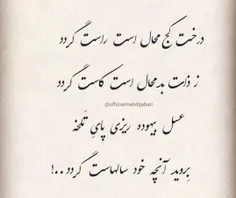 درخت کج محال است راست گردد
ز ذات بد محال است کاست گردد
@officialmehdijabari
عسل بیهوده ریزی پایِ تَلخه
بِروید آنچه خود سالهاست گردد..!